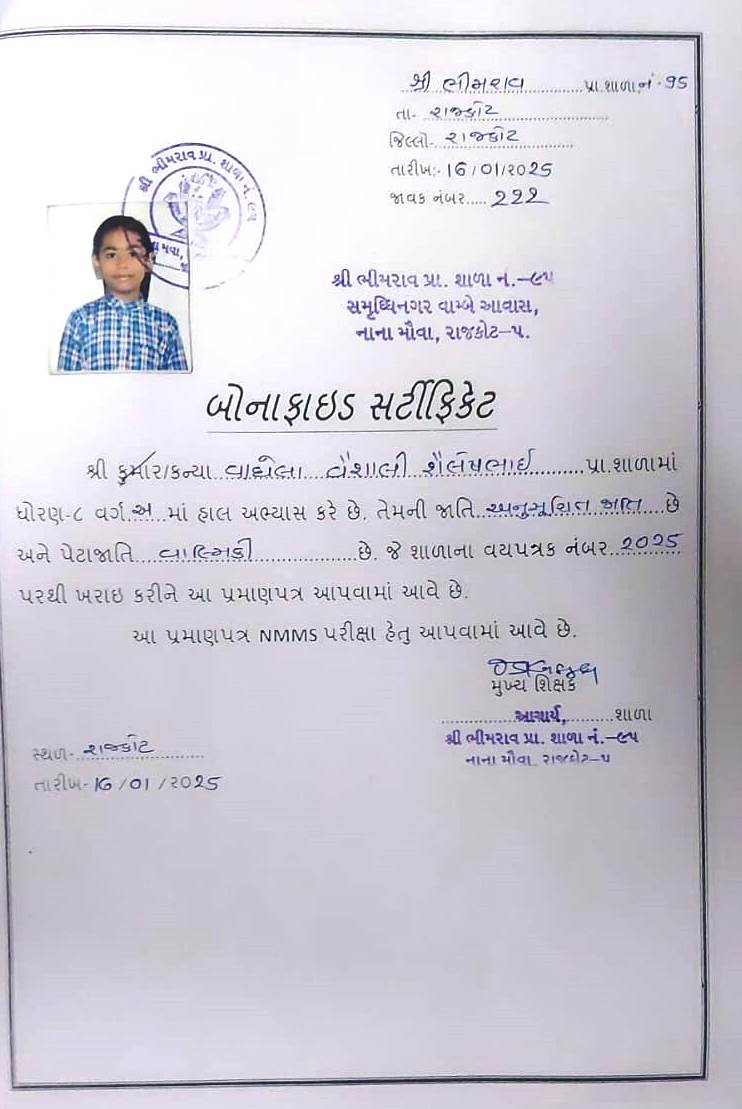 શ્રી ભીમરાવ પ્રા.શાળા નં - 95
તા- રાજકોટ
જિલ્લો- રાજકોટ
તારીખ:- 16/01/2025
જાવક નંબર..... 222
શ્રી ભીમરાવ પ્રા. શાળા નં. ૯૫
શ્રી ભીમરાવ પ્રા. શાળા નં.–૯૫
સમૃધ્ધિનગર વામ્બે આવાસ,
નાના મૌવા, રાજકોટ–૫.
બોનાફાઇડ સર્ટીફિકેટ
શ્રી કુમાર/કન્યા વાઘેલા વૈશાલી શૈલેષભાઈ પ્રા.શાળામાં
ધોરણ-૮ વર્ગ અ માં હાલ અભ્યાસ કરે છે. તેમની જાતિ અનુસૂચિત જાતિ છે
અને પેટાજાતિ વાલ્મિકી છે. જે શાળાના વયપત્રક નંબર 2025
પરથી ખરાઇ કરીને આ પ્રમાણપત્ર આપવામાં આવે છે.
આ પ્રમાણપત્ર NMMS પરીક્ષા હેતુ આપવામાં આવે છે.
મુખ્ય શિક્ષક
આચાર્ય, શાળા
શ્રી ભીમરાવ પ્રા. શાળા નં.–૯૫
નાના મૌવા રાજકોટ–૫
સ્થળ- રાજકોટ
તારીખ- 16/01/2025